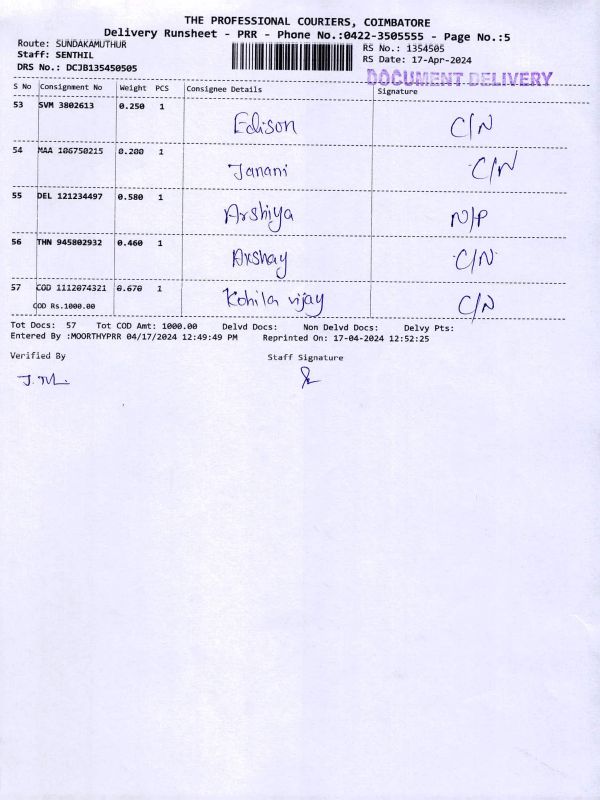 THE PROFESSIONAL COURIERS, COIMBATORE
Delivery Runsheet - PRR - Phone No.:0422-3505555 - Page No.:5
Route: SUNDAKAMUTHUR RS No.: 1354505
Staff: SENTHIL RS Date: 17-Apr-2024
DRS No.: DCJB135450505
DOCUMENT DELIVERY
S No Consignment No Weight PCS Consignee Details Signature
53 SVM 3802613 0.250 1 Edison C/N
54 MAA 106750215 0.200 1 Janani C/N
55 DEL 121234497 0.580 1 Arshiya N/P
56 THN 945802932 0.460 1 Akshay C/N
57 COD 1112074321 0.670 1 Kohila vijay C/N
COD Rs.1000.00
Tot Docs: 57 Tot COD Amt: 1000.00 Delvd Docs: Non Delvd Docs: Delvy Pts:
Entered By :MOORTHYPRR 04/17/2024 12:49:49 PM Reprinted On: 17-04-2024 12:52:25
Verified By Staff Signature